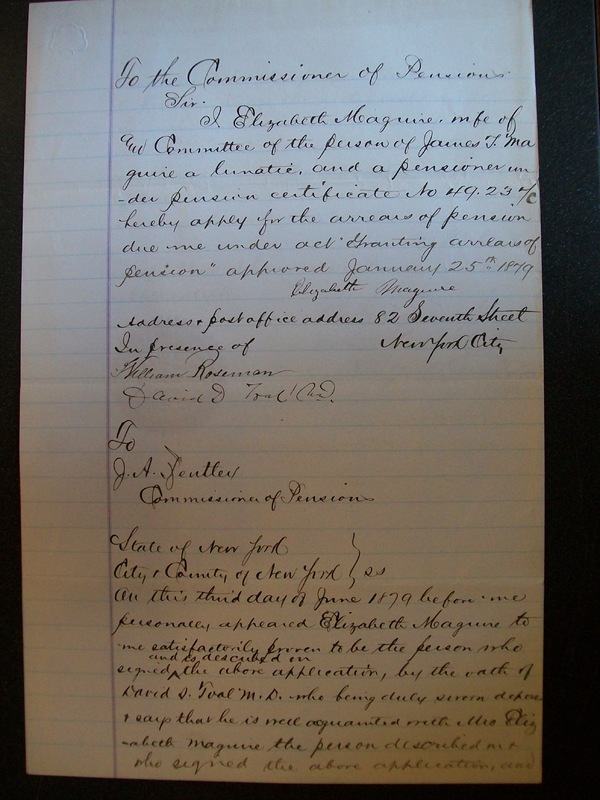 To the Commissioner of Pensions
Sir.
I Elizabeth Maguire. wife of
and Committee of the person of James T. Ma
guire a lunatic, and a pensioner un
-der pension certificate No 49.23
hereby apply for the arrears of pension
due me under act "Granting arrears of
pension" approved January 25th 1879
Elizabeth Maguire
Address & post office address 82 Seventh Street
In presence of New York City
William Roseman
David D Toal M.D.
To
J. A. Bentley
Commissioner of Pensions
State of New York
City & County of New York } ss
On this third day of June 1879 before me
personally appeared Elizabeth Maguire to
me satisfactorily proven to be the person who
and is described in
signed ^ the above application, by the oath of
David D. Toal M.D. who being duly sworn depose
& say that he is well acquainted with Mrs Eliz
-abeth Maguire the person described in &
who signed the above application, and